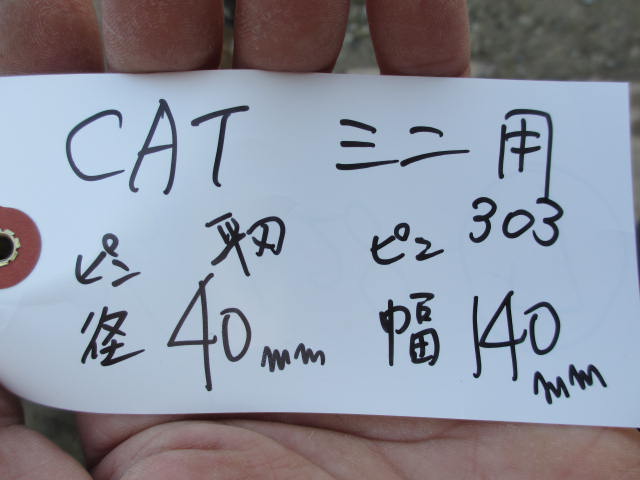 CAT ミニ用
平刃 303
ピン径 40mm ピン幅 140mm